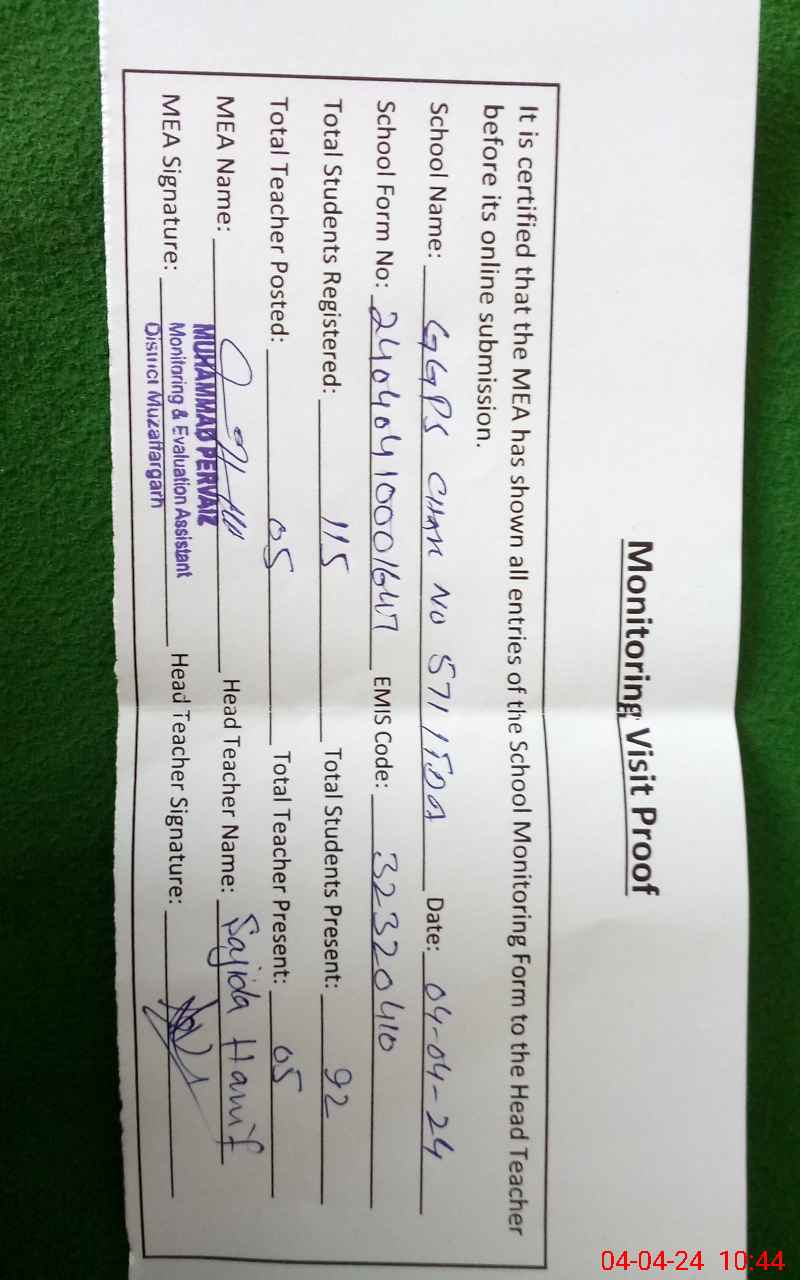 Monitoring Visit Proof
It is certified that the MEA has shown all entries of the School Monitoring Form to the Head Teacher
before its online submission.
School Name: GGPS CHAK NO 571 /TDA Date: 04-04-24
School Form No: 24040410001647 EMIS Code: 32320410
Total Students Registered: 115 Total Students Present: 92
Total Teacher Posted: 05 Total Teacher Present: 05
MEA Name: Head Teacher Name: Sajida Hanif
MUHAMMAD PERVAIZ
MEA Signature: Head Teacher Signature:
Monitoring & Evaluation Assistant
District Muzaffargarh
04-04-24 10:44